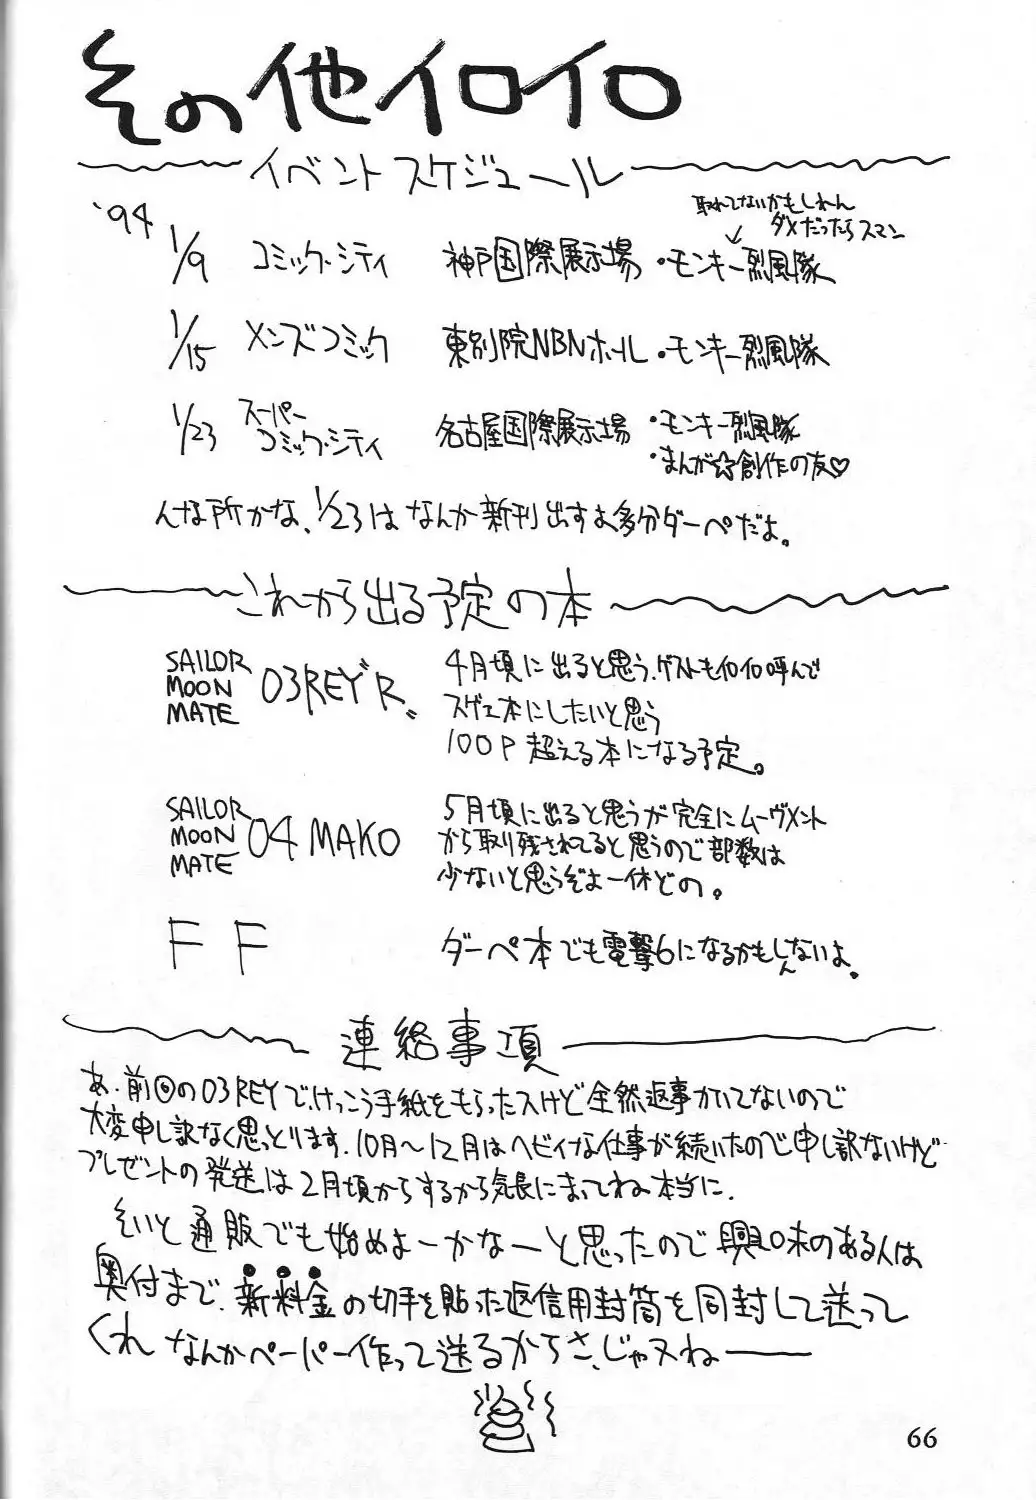 その他イロイロ
イベントスケジュール
'94
取れてないかもしれん
ダメだったらスマン
1/9 コミック・シティ 神戸国際展示場 ・モンキー烈風隊
1/15 メンズコミック 東別院NBNホール ・モンキー烈風隊
1/23 スーパーコミック・シティ 名古屋国際展示場 ・モンキー烈風隊
・まんが☆創作の友♡
んな所かな、1/23はなんか新刊出すよ多分ダーペだよ。
これから出る予定の本
SAILOR MOON MATE 03REY"R〟
4月頃に出ると思う、ゲストもイロイロ呼んで
スゲェ本にしたいと思う
100P超える本になる予定。
SAILOR MOON MATE 04 MAKO
5月頃に出ると思うが完全にムーヴメント
から取り残されてると思うので部数は
少ないと思うぞよー休どの。
FF
ダーペ本でも電撃6になるかもしんないよ。
連絡事項
あ、前回の03REYでけっこう手紙をもらったスけど全然返事かいてないので
大変申し訳なく思っとります、10月〜12月はヘビイな仕事が続いたので申し訳ないけど
プレゼントの発送は2月頃からするから気長にまっててね本当に、
そいと通販でも始めよーかなーと思ったので興味のある人は
奥付まで、新料金の切手を貼った返信用封筒を同封して送って
くれ なんかペーパー作って送るからさ、じゃヌねーーー
66